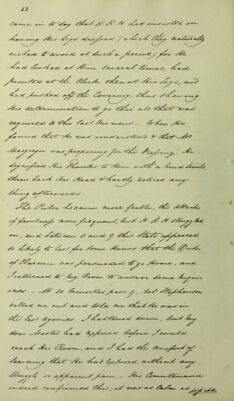 came in to day that H. R. H. had insisted on
having His Legs dressed (which they naturally
wished to avoid at such a period), for He
had looked at Him several times, had
pointed at the Clock, then at His Legs, and
had pushed off the Covering, thus shewing
His determination to go thro' all that was
required to the last Moment. When He
found that He was understood & that Mr
Macgregor was preparing for the Dressing, He
signified His Thanks to Him with a kind Smile
threw back His Head & hardly noticed any
thing afterwards.
The Pulse became more feeble, the attacks
of faintness more frequent, but H. R. H. struggled
on, and between 8 and 9 this State appeared
so likely to last for some Hours that the Duke
of Clarence was persuaded to go Home, and
I returned to my Room to answer some Inquir-
ies. At 20 minutes past 9, Col. Stephenson
called me out and told me that He was in
the last agonies. I hastened down, but my
dear Master had expired before I could
reach His Room, and I had the comfort of
learning that He had expired without any
Struggle or apparent pain. His Countenance
indeed confirmed this, it was as calm as possible